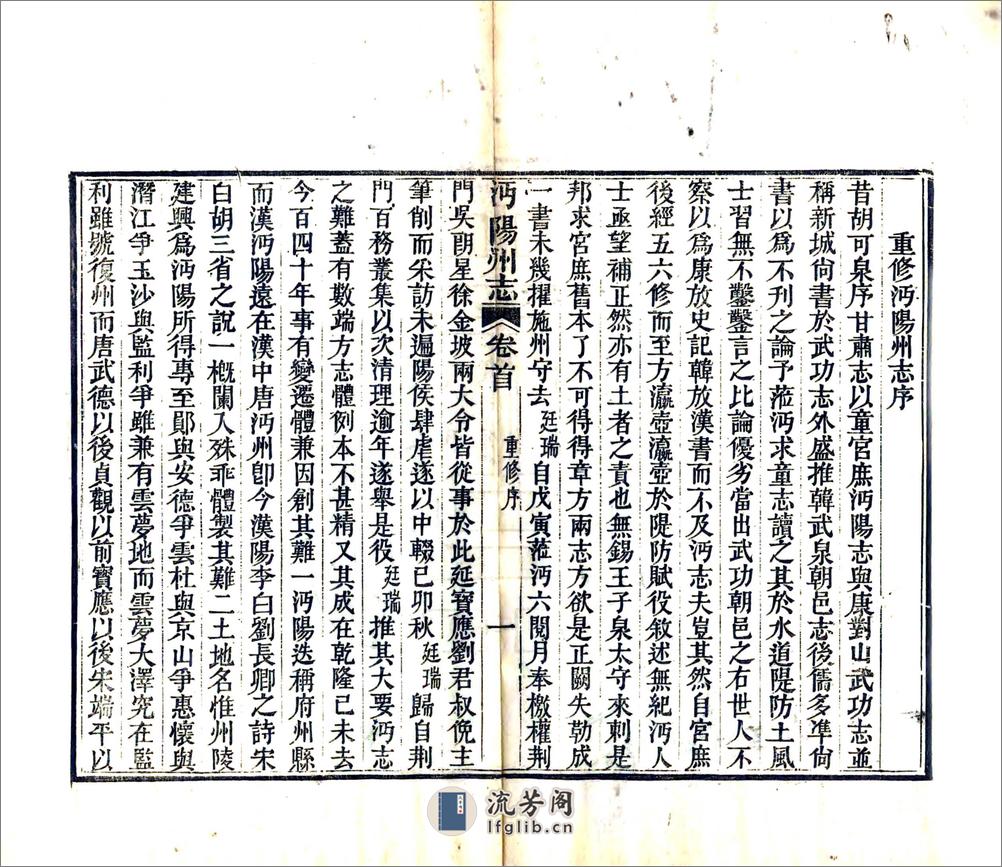 重修沔陽州志序
昔胡可泉序甘肅志以童官庶沔陽志與康對山武功志並
稱新城尙書於武功志外盛推韓武泉朝邑志後儒多準尙
書以爲不刋之論予蒞沔求童志讀之其於水道隄防土風
士習無不鑿鑿言之比論優劣當出武功朝邑之右世人不
察以爲康放史記韓放漢書而不及沔志夫豈其然自宮庶
後經五六修而至方瀛壺瀛壺於隄防賦役敘述無紀沔人
士亟望補正然亦有土者之責也無錫王子泉太守來刺是
邦求宮庶舊本了不可得得章方兩志方欲是正闕失勒成
一書未幾擢施州守去廷瑞自戊寅蒞沔六閱月奉檄權荆
沔陽州志 卷首 重修序 一
門吳朗星徐金坡兩大分皆從事於此延寶應劉君叔俛主
筆削而采訪未遍陽侯肆虐遂以中輟已卯秋廷瑞歸自荆
門百務叢集以次清理逾年遂舉是役廷瑞推其大要沔志
之難蓋有數端方志體例本不甚精又其成在乾隆已未去
今百四十年事有變遷體兼因創其難一沔陽迭稱府州縣
而漢沔陽遠在漢中唐沔州卽今漢陽李白劉長卿之詩宋
白胡三省之說一槪闌入殊乖體製其難二土地名惟州陵
建興爲沔陽所得專至鄖與安德爭雲杜與京山爭惠懷與
潛江爭玉沙與監利爭雖兼有雲夢地而雲夢大澤究在監
利雖號復州而唐武德以後貞觀以前寶應以後宋端平以
流芳阁
lfglib.cn